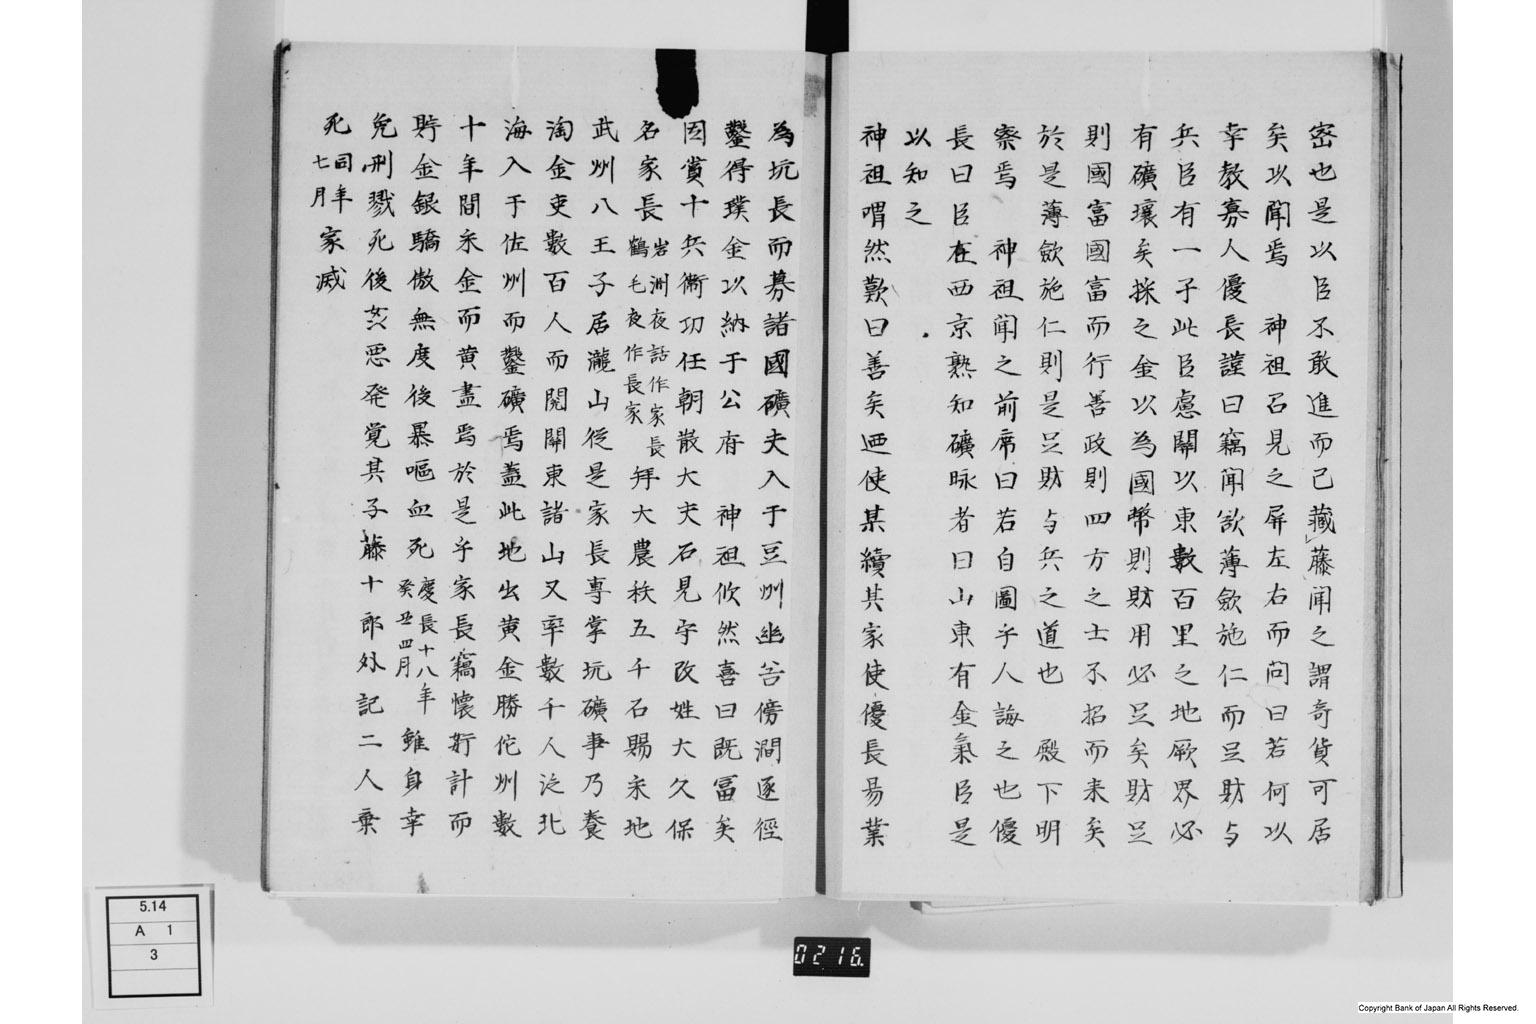 密也是以臣不敢進而已藏藤聞之謂奇貨可居
矣以聞焉　神祖召見之屏左右而問曰若何以
幸教寡人優長謹曰竊聞欲薄斂施仁而足財与
兵臣有一子此臣慮關以東數百里之地厥界必
有礦壤矣採之金以為國幣則財用必足矣財足
則國富國富而行善政則四方之士不招而来矣
於是薄斂施仁則是足財与兵之道也　殿下明
察焉　神祖聞之前席曰若自圖乎人誨之也優
長曰臣在西京熟知礦脉者曰山東有金氣臣是
以知之
神祖喟然歎曰善矣廼使某續其家使優長易業
為坑長而募諸國礦夫入于豆州幽谷傍澗逐徑
鑿得璞金以納于公府　神祖攸然喜曰既富矣
因賞十兵衛功任朝散大夫石見守改姓大久保
名家長岩洲夜話作家長
鶴毛夜作長家拜大農秩五千石賜采地
武州八王子居瀧山從是家長專掌坑礦事乃養
淘金吏數百人而閲關東諸山又率數千人泛北
海入于佐州而鑿礦焉蓋此地出黄金勝佗州數
十年間采金而黄盡焉於是乎家長竊懐姧計而
貯金銀驕傲無度後暴嘔血死慶長十八年
癸丑四月雖身幸
免刑戮死後姦悪発覚其子藤十郎外記二人棄
死同年
七月家滅
5.14
A 1
3
0216.
Copyright Bank of Japan All Rights Reserved.